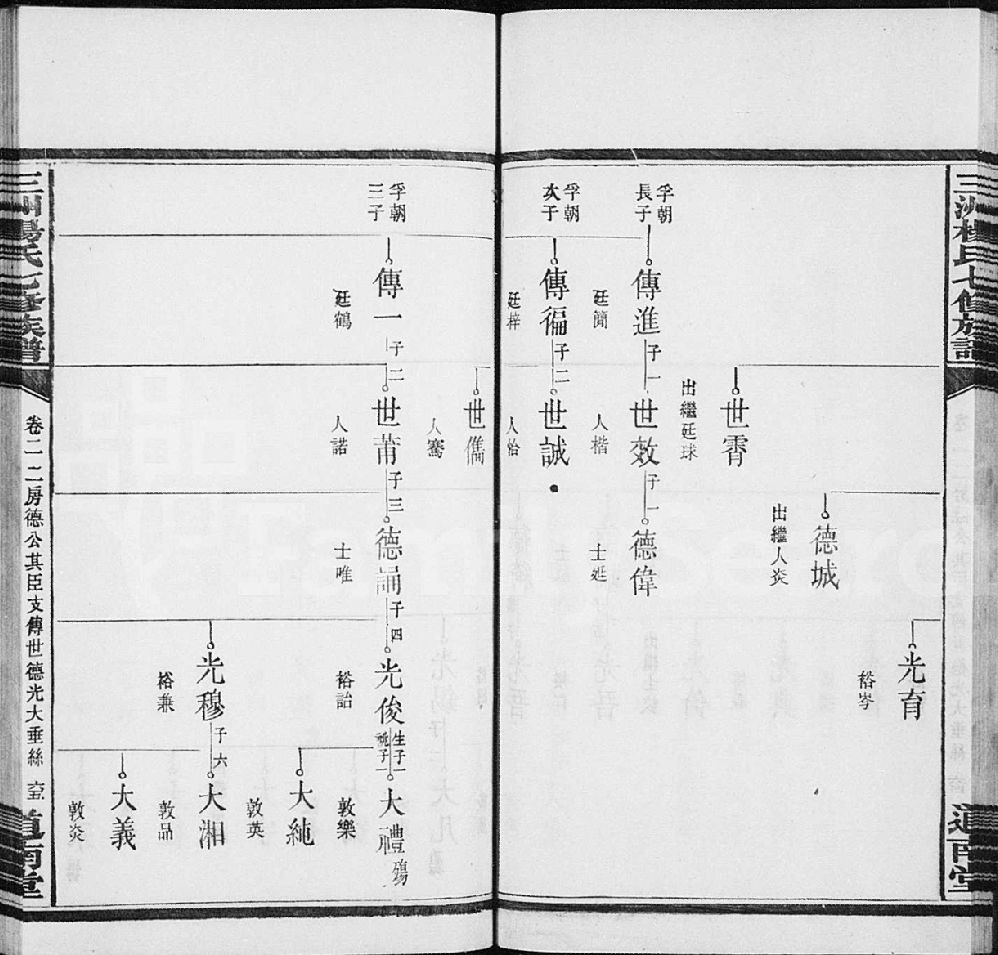 三洲楊氏七修族譜
道南堂
光育
裕岑
德城
出繼人炎
世霄
出繼廷球
孚朝
長子
傳進
子一
世效
子一
德偉
廷簡
人楷
士𨒂
孚朝
次子
傳徧
子二
世誠
廷梓
人怡
世儁
人騫
孚朝
三子
傳一
子二
世莆
子三
德誦
子四
光俊
生子一
祧子一
大禮
殤
廷鶴
人諾
士唯
裕詒
敦樂
大純
敦英
光穆
子六
大湘
裕兼
敦品
大義
敦炎
三洲楊氏七修族譜
卷二 二房德公其臣支傳世德光大垂絲
道南堂